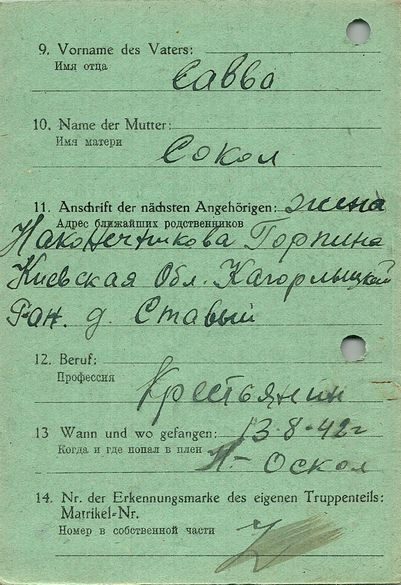 9. Vorname des Vaters:
Имя отца
Савва
10. Name der Mutter:
Имя матери
Сокол
11. Anschrift der nächsten Angehörigen: жена
Адрес ближайших родственников
Наконечникова Горпина
Киевская Обл. Кагорлыцкий
Ран. д. Ставый
12. Beruf:
Профессия
Крестьянин
13 Wann und wo gefangen: 13-8-42г
Когда и где попал в плен
Оскол
14. Nr. der Erkennungsmarke des eigenen Truppenteils:
Matrikel-Nr.
Номер в собственной части